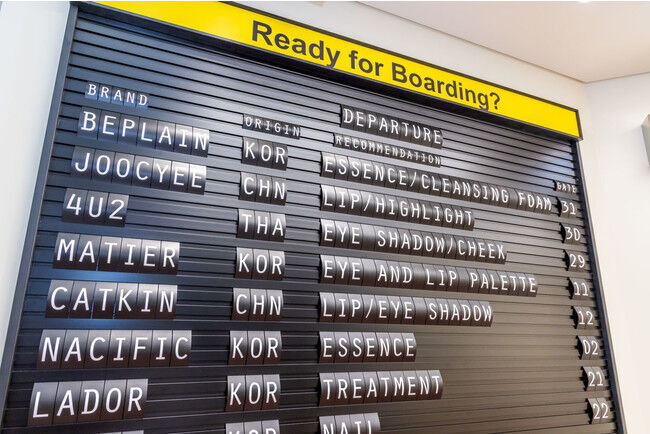 Ready for Boarding?
DEPARTURE
BRAND ORIGIN RECOMMENDATION GATE
BEPLAIN KOR ESSENCE/CLEANSING FOAM 31
JOOCYEE CHN LIP/HIGHLIGHT 30
4U2 THA EYE SHADOW/CHEEK 29
MATIER KOR EYE AND LIP PALETTE 11
CATKIN CHN LIP/EYE SHADOW 12
NACIFIC KOR ESSENCE 02
LADOR KOR TREATMENT 21
KOR NAIL 22